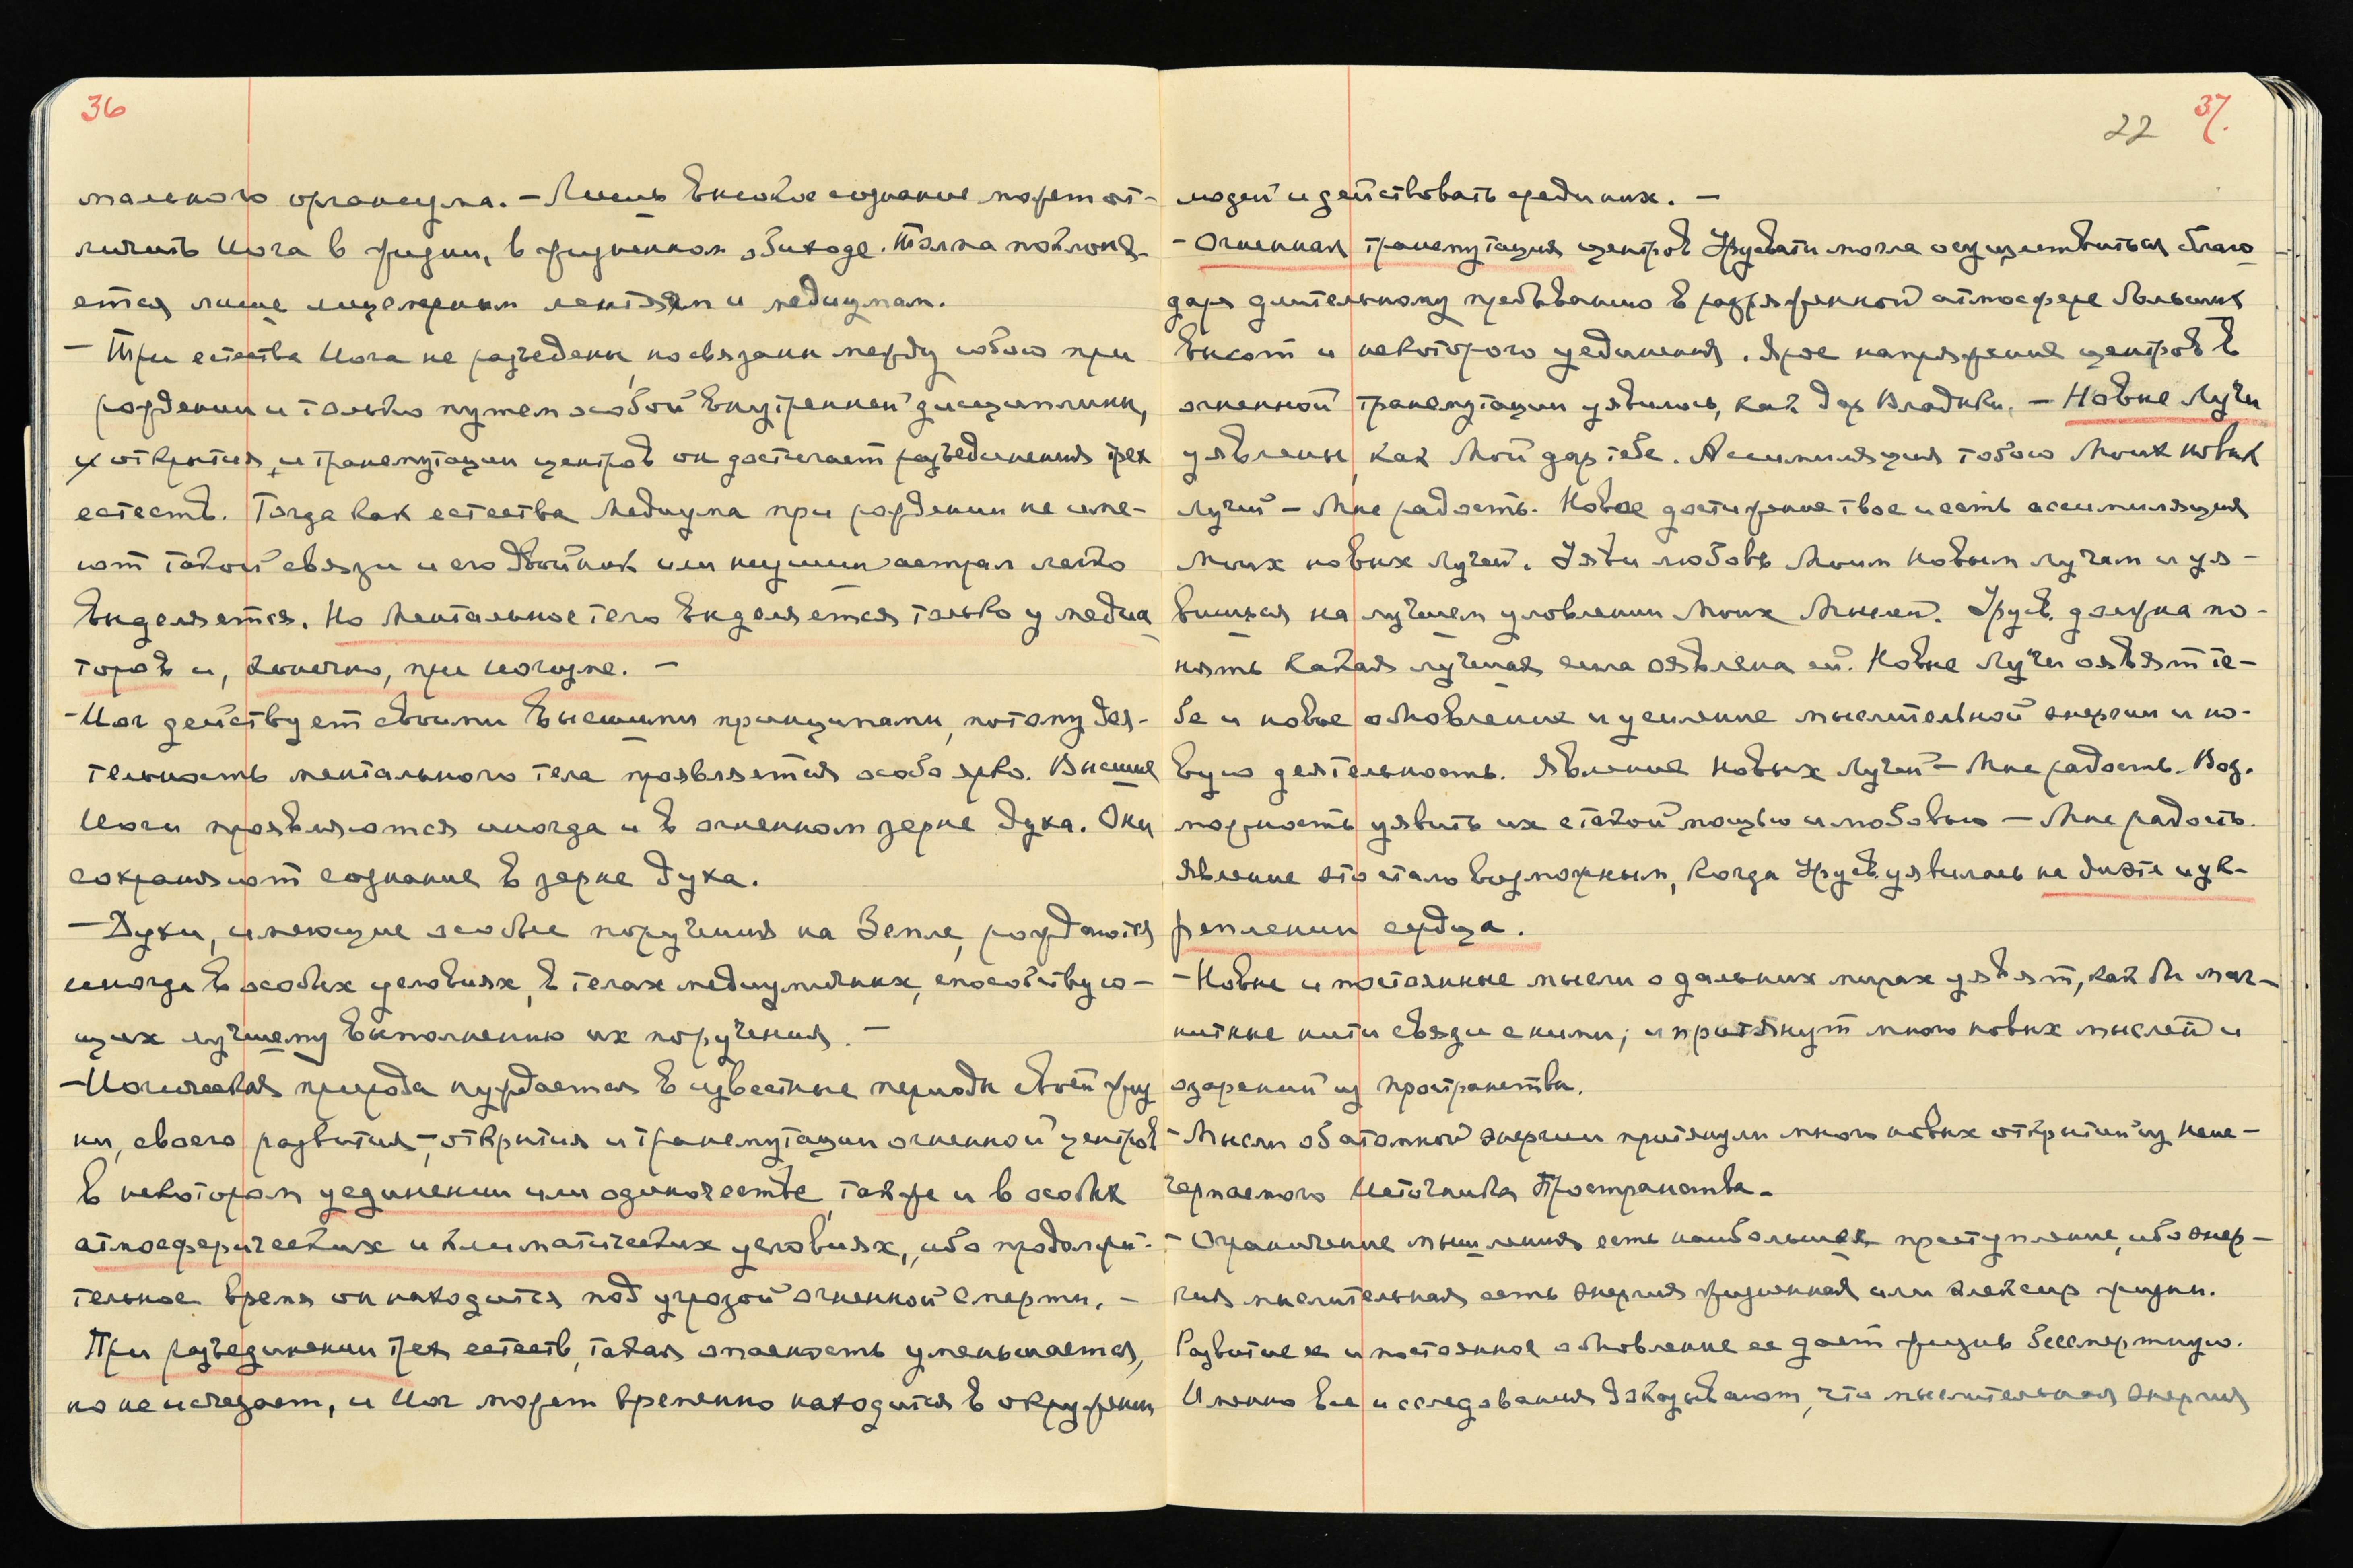 36
мального организма. – Лишь высокое сознание может от-
личить Йога в жизни, в жизненном обиходе. Толпа поклоня-
ется лише лицемерным лентяям и медиумам.
– Три естества Йога не разъедены, но связаны между собою при
рождении и только путем особой внутренней дисциплины,
открытия и трансмутации центров он достигает разъединения трех
естеств. Тогда как естества Медиума при рождении не име-
ют такой связи и его двойник или низший астрал легко
выделяется. Но Ментальное тело выделяется только у медиа
торов и, конечно, при йогизме. –
– Йог действует своими высшими принципами, потому дея-
тельность ментального тела проявляется особо ярко. Высшие
Йоги проявляются иногда и в огненном зерне духа. Они
сохраняют сознание в зерне духа.
– Духи, имеющие особые поручения на Земле, рождаются
иногда в особых условиях, в телах медиумичных, способствую-
щих лучшему выполнению их поручения. –
– Йогическая природа нуждается в известные периоды своей жиз
ни, своего развития, – открытия и трансмутации огненной центров
в некотором уединении или одиночестве, также и в особых
атмосферических и климатических условиях, ибо продолжи-
тельное время он находится под угрозой огненной смерти. –
При разъединении трех естеств, такая опасность уменьшается,
но не исчезает, и Йог может временно находится в окружении
22 37.
людей и действовать среди них. –
– Огненная трансмутация центров Урусвати могла осуществиться благо
даря длительному пребыванию в разряженной атмосфере больших
высот и некоторого уединения. Ярое напряжение центров в
огненной трансмутации уявилось, как дар Владыки. – Новые Лучи
уявлены, как Мой дар тебе. Ассимиляция тобою Моих новых
лучей – Мне радость. Новое достижение твое и есть ассимиляция
Моих новых Лучей. Уяви любовь Моим Новым лучам и уя-
вишься на лучшем уловлении Моих Мыслей. Урусв. должна по-
нять какая лучшая сила оявлена ей. Новые Лучи оявят те-
бе и новое обновление и усиление мыслительной энергии и но-
вую деятельность. Явление Новых Лучей – Мне радость. Воз-
можность уявить их с такой мощью и любовью – Мне радость.
Явление это стало возможным, когда Урусв. уявилась на диэте и ук-
реплении сердца.
– Новые и постоянные мысли о дальних мирах уявят, как бы маг-
нитные нити связи с ними; и притянут много новых мыслей и
озарений из пространства.
– Мысли об атомной энергии притянули много новых открытий из неис-
черпаемого Источника Пространства.
– Ограничение мышления есть наибольшее преступление, ибо энер-
гия мыслительная есть энергия жизненная или элексир жизни.
Развитие и постоянное обновление ее дает жизнь бессмертную.
Именно все исследования доказывают, что мыслительная энергия